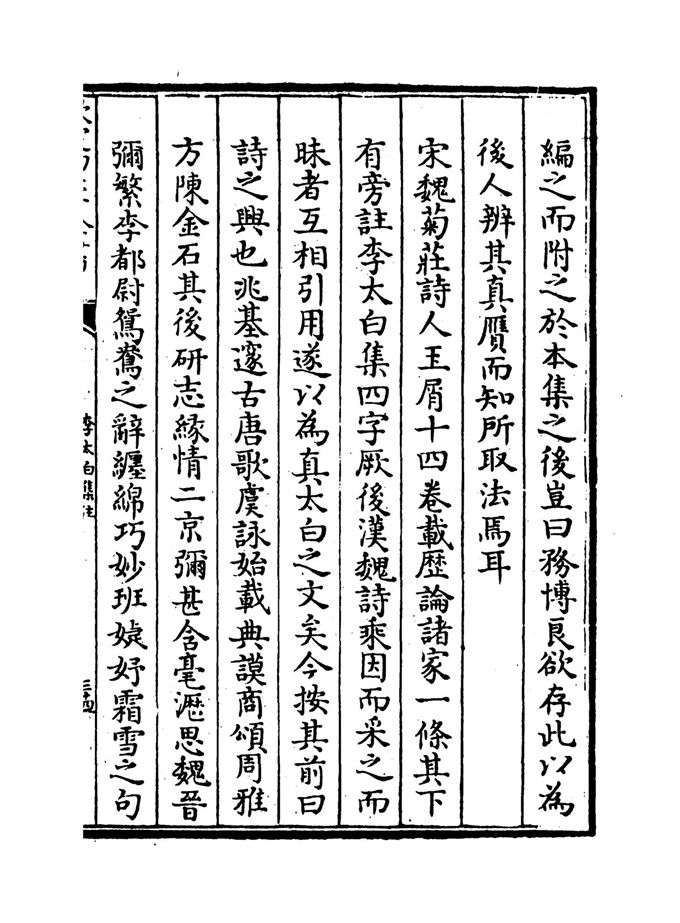 編之而附之於本集之後豈曰務博良欲存此以為
後人辨其真贋而知所取法焉耳
宋魏菊莊詩人玉屑十四卷載歷論諸家一條其下
有旁註李太白集四字厥後漢魏詩乘因而采之而
昧者互相引用遂以為真太白之文矣今按其前曰
詩之興也兆基邃古唐歌虞詠始載典謨商頌周雅
方陳金石其後研志緣情二京彌甚含毫瀝思魏晉
彌繁李都尉鴛鴦之辭纏綿巧妙班婕妤霜雪之句
李太白集註